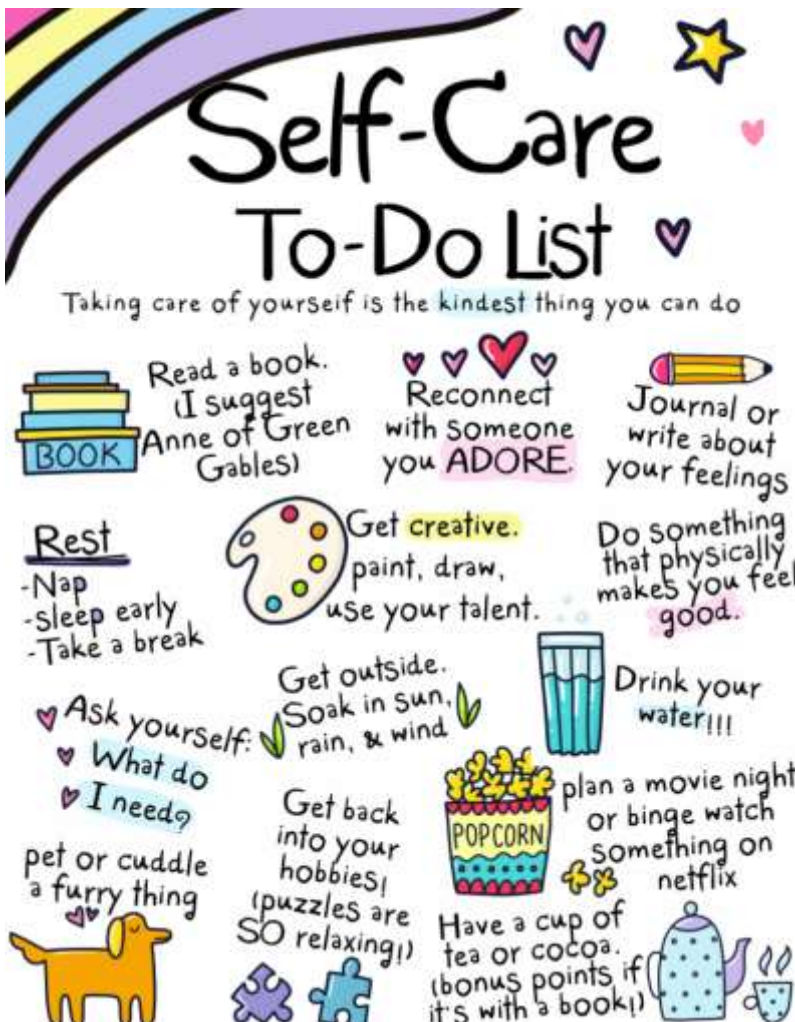 Self-Care
To-Do List
Taking care of yourseif is the kindest thing you can do
Read a book.
(I suggest
Anne of Green
Gables)
BOOK
Reconnect
with someone
you ADORE.
Journal or
write about
your feelings
Rest
-Nap
-sleep early
-Take a break
Get creative.
paint, draw,
use your talent.
Do something
that physically
makes you feel
good.
Get outside.
Soak in sun,
rain, & wind
Drink your
water!!!
Ask yourself:
What do
I need?
Get back
into your
hobbies!
(puzzles are
SO relaxing!)
POPCORN
plan a movie night
or binge watch
something on
netflix
pet or cuddle
a furry thing
Have a cup of
tea or cocoa.
(bonus points if
it's with a book!)